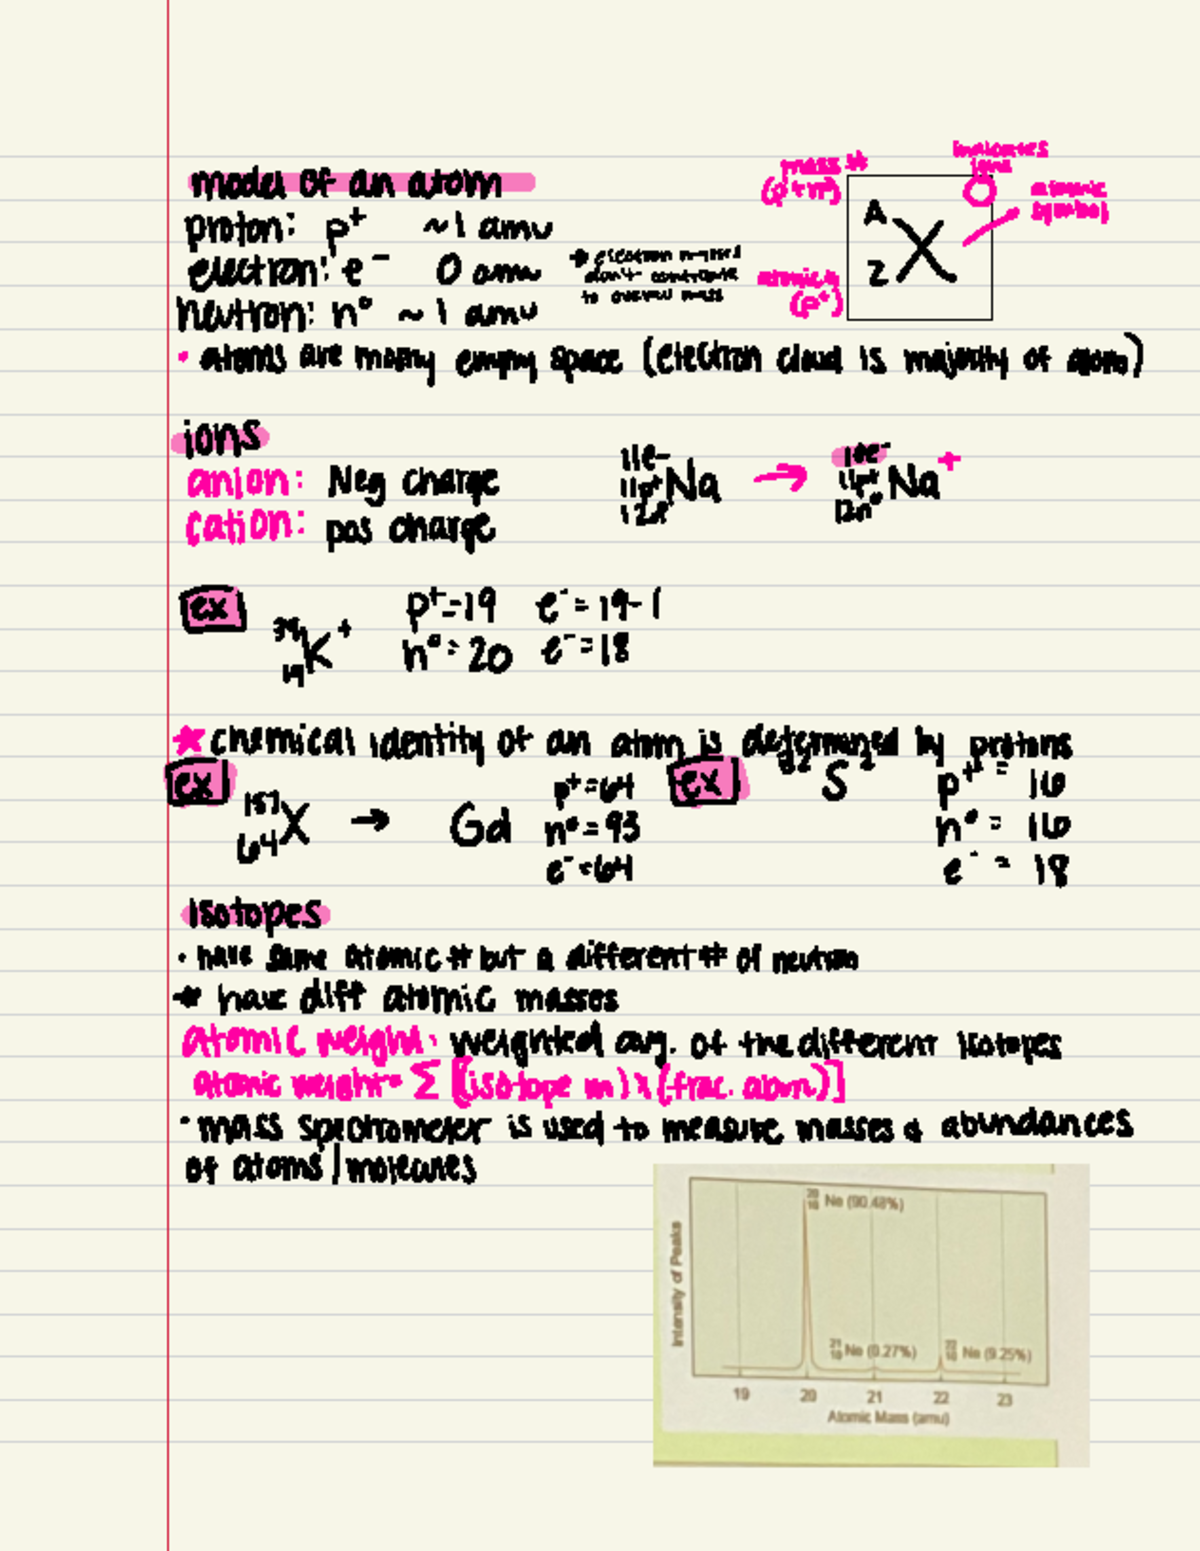 model of an atom
proton: p⁺ ~1 amu
electron: e⁻ 0 amu
neutron: n° ~1 amu
* electron masses
don't contribute
to overall mass
mass #
(p⁺+n°)
indicates
ions
atomic
symbol
atomic #
(p⁺)
A
X
Z
• atoms are mostly empty space (electron cloud is majority of atom)
ions
anion: Neg charge
cation: pos charge
11e-
11p⁺ Na
12n°
→
10e⁻
11p⁺ Na⁺
12n°
ex
³⁹₁₉K⁺
p⁺=19 e⁻=19-1
n°=20 e⁻=18
★ chemical identity of an atom is determined by protons
ex
¹⁵⁷₆₄X → Gd
p⁺=64
n°=93
e⁻=64
ex
³²S²⁻
p⁺ = 16
n° = 16
e⁻ = 18
isotopes
• have same atomic # but a different # of neutron
* have diff atomic masses
atomic weight: weighted avg. of the different isotopes
atomic weight= Σ [(isotope m) x (frac. abun)]
• mass spectrometer is used to measure masses & abundances
of atoms/molecules
Intensity of Peaks
²⁰₁₀ Ne (90.48%)
²¹₁₀ Ne (0.27%)
²²₁₀ Ne (9.25%)
19 20 21 22 23
Atomic Mass (amu)